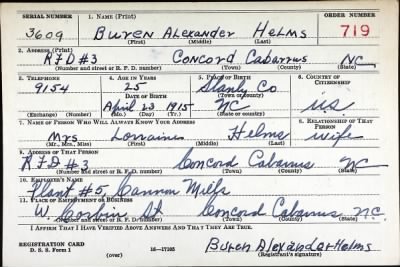 SERIAL NUMBER 1. NAME (Print) ORDER NUMBER
3609 Buren Alexander Helms 719
(First) (Middle) (Last)
2. ADDRESS (Print)
RFD #3 Concord Cabarrus NC
(Number and street or R. F. D. number) (Town) (County) (State)
3. TELEPHONE 4. AGE IN YEARS 5. PLACE OF BIRTH 6. COUNTRY OF CITIZENSHIP
9154 25 Stanly Co
DATE OF BIRTH (Town or county)
April 23 1915 NC U.S.
(Exchange) (Number) (Mo.) (Day) (Yr.) (State or country)
7. NAME OF PERSON WHO WILL ALWAYS KNOW YOUR ADDRESS 8. RELATIONSHIP OF THAT PERSON
Mrs Lorraine Helms wife
(Mr., Mrs., Miss) (First) (Middle) (Last)
9. ADDRESS OF THAT PERSON
RFD #3 Concord Cabarrus NC
(Number and street or R. F. D. number) (Town) (County) (State)
10. EMPLOYER'S NAME
Plant #5, Cannon Mills
11. PLACE OF EMPLOYMENT OR BUSINESS
W. Corbin St Concord Cabarrus N.C.
(Number and street or R. F. D. number) (Town) (County) (State)
I AFFIRM THAT I HAVE VERIFIED ABOVE ANSWERS AND THAT THEY ARE TRUE.
REGISTRATION CARD
D. S. S. Form 1 16—17105 Buren Alexander Helms
(over) (Registrant's signature)